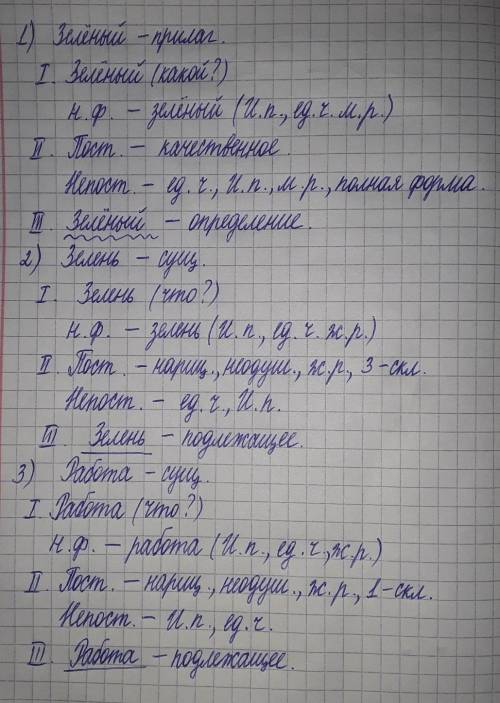 1) Зелёный – прилаг.
I Зелёный (какой?)
н.ф. – зелёный (И.п., ед.ч. м.р.)
II Пост. – качественное.
Непост. – ед.ч., И.п., м.р., полная форма.
III Зелёный – определение.
2) Зелень – сущ.
I. Зелень (что?)
н.ф. – зелень (И.п., ед.ч. ж.р.)
II Пост. – нариц., неодуш., ж.р., 3-скл.
Непост. – ед.ч., И.п.
III Зелень – подлежащее.
3) Работа – сущ.
I Работа (что?)
н.ф. – работа (И.п., ед.ч., ж.р.)
II Пост. – нариц., неодуш., ж.р., 1-скл.
Непост. – И.п., ед.ч.
III Работа – подлежащее.